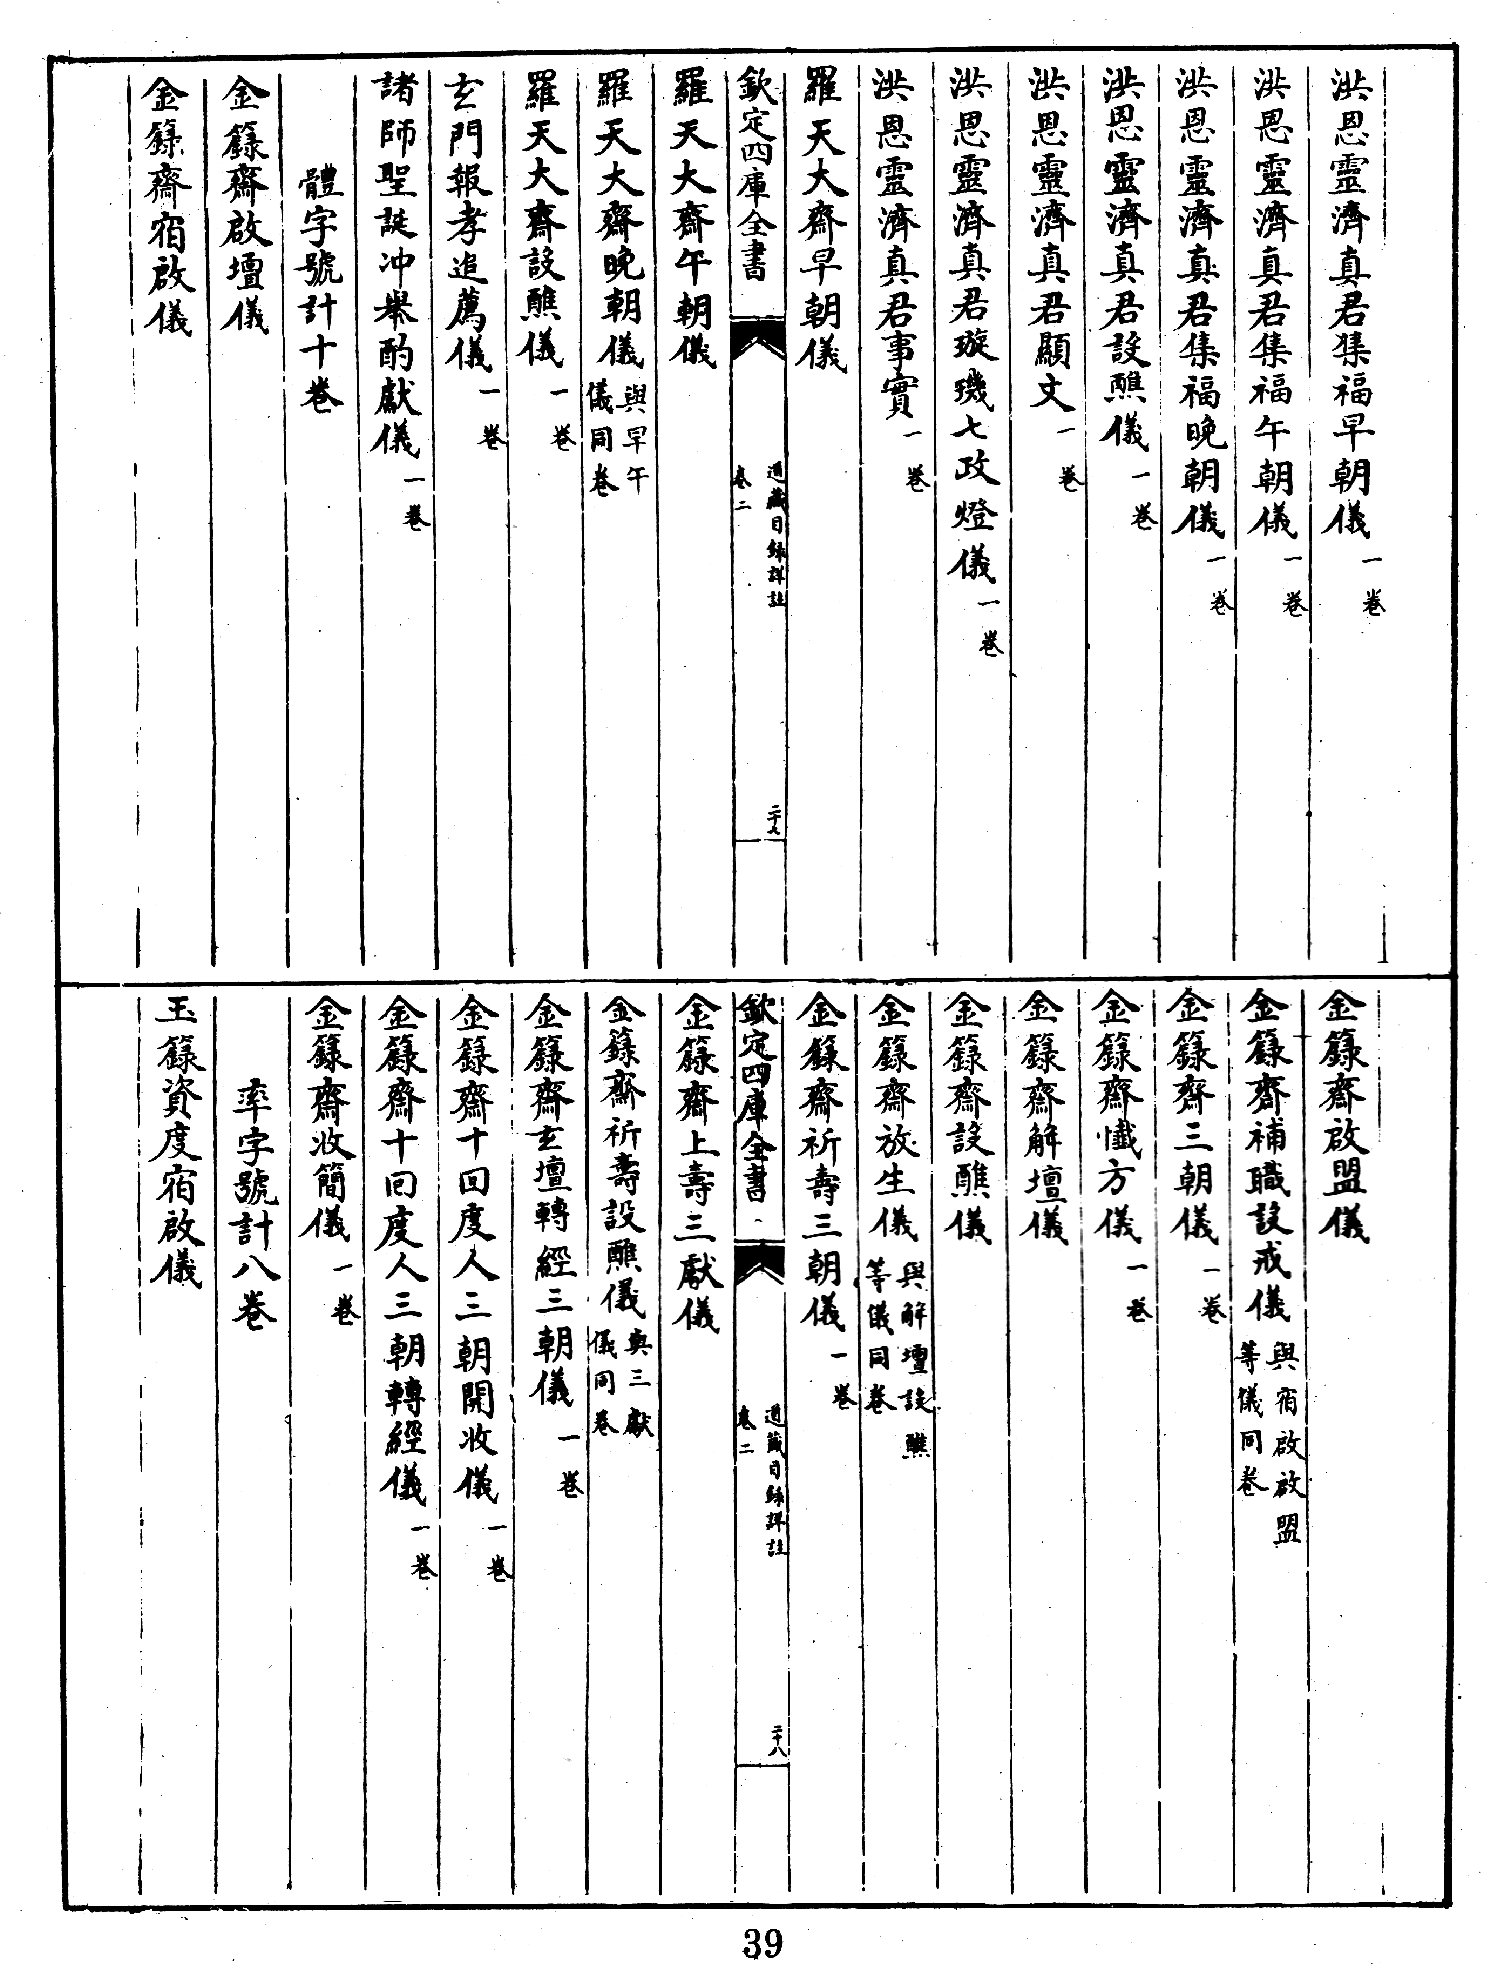 洪恩靈濟真君集福早朝儀一卷
洪恩靈濟真君集福午朝儀一卷
洪恩靈濟真君集福晚朝儀一卷
洪恩靈濟真君設醮儀一卷
洪恩靈濟真君顯文一卷
洪恩靈濟真君璇璣七政燈儀一卷
洪恩靈濟真君事實一卷
羅天大齋早朝儀
欽定四庫全書
道藏目録詳註
卷二
二十七
羅天大齋午朝儀
羅天大齋晚朝儀與早午儀同卷
羅天大齋設醮儀一卷
玄門報孝追薦儀一卷
諸師聖誕冲舉酌獻儀一卷
體字號計十卷
金籙齋啟壇儀
金籙齋宿啟儀
金籙齋啟盟儀
金籙齋補職設戒儀與宿啟啟盟等儀同卷
金籙齋三朝儀一卷
金籙齋懺方儀一卷
金籙齋解壇儀
金籙齋設醮儀
金籙齋放生儀與解壇設醮等儀同卷
金籙齋祈壽三朝儀一卷
欽定四庫全書
道藏目録詳註
卷二
二十八
金籙齋上壽三獻儀
金籙齋祈壽設醮儀與三獻儀同卷
金籙齋玄壇轉經三朝儀一卷
金籙齋十回度人三朝開收儀一卷
金籙齋十回度人三朝轉經儀一卷
金籙齋收簡儀一卷
率字號計八卷
玉籙資度宿啟儀
39